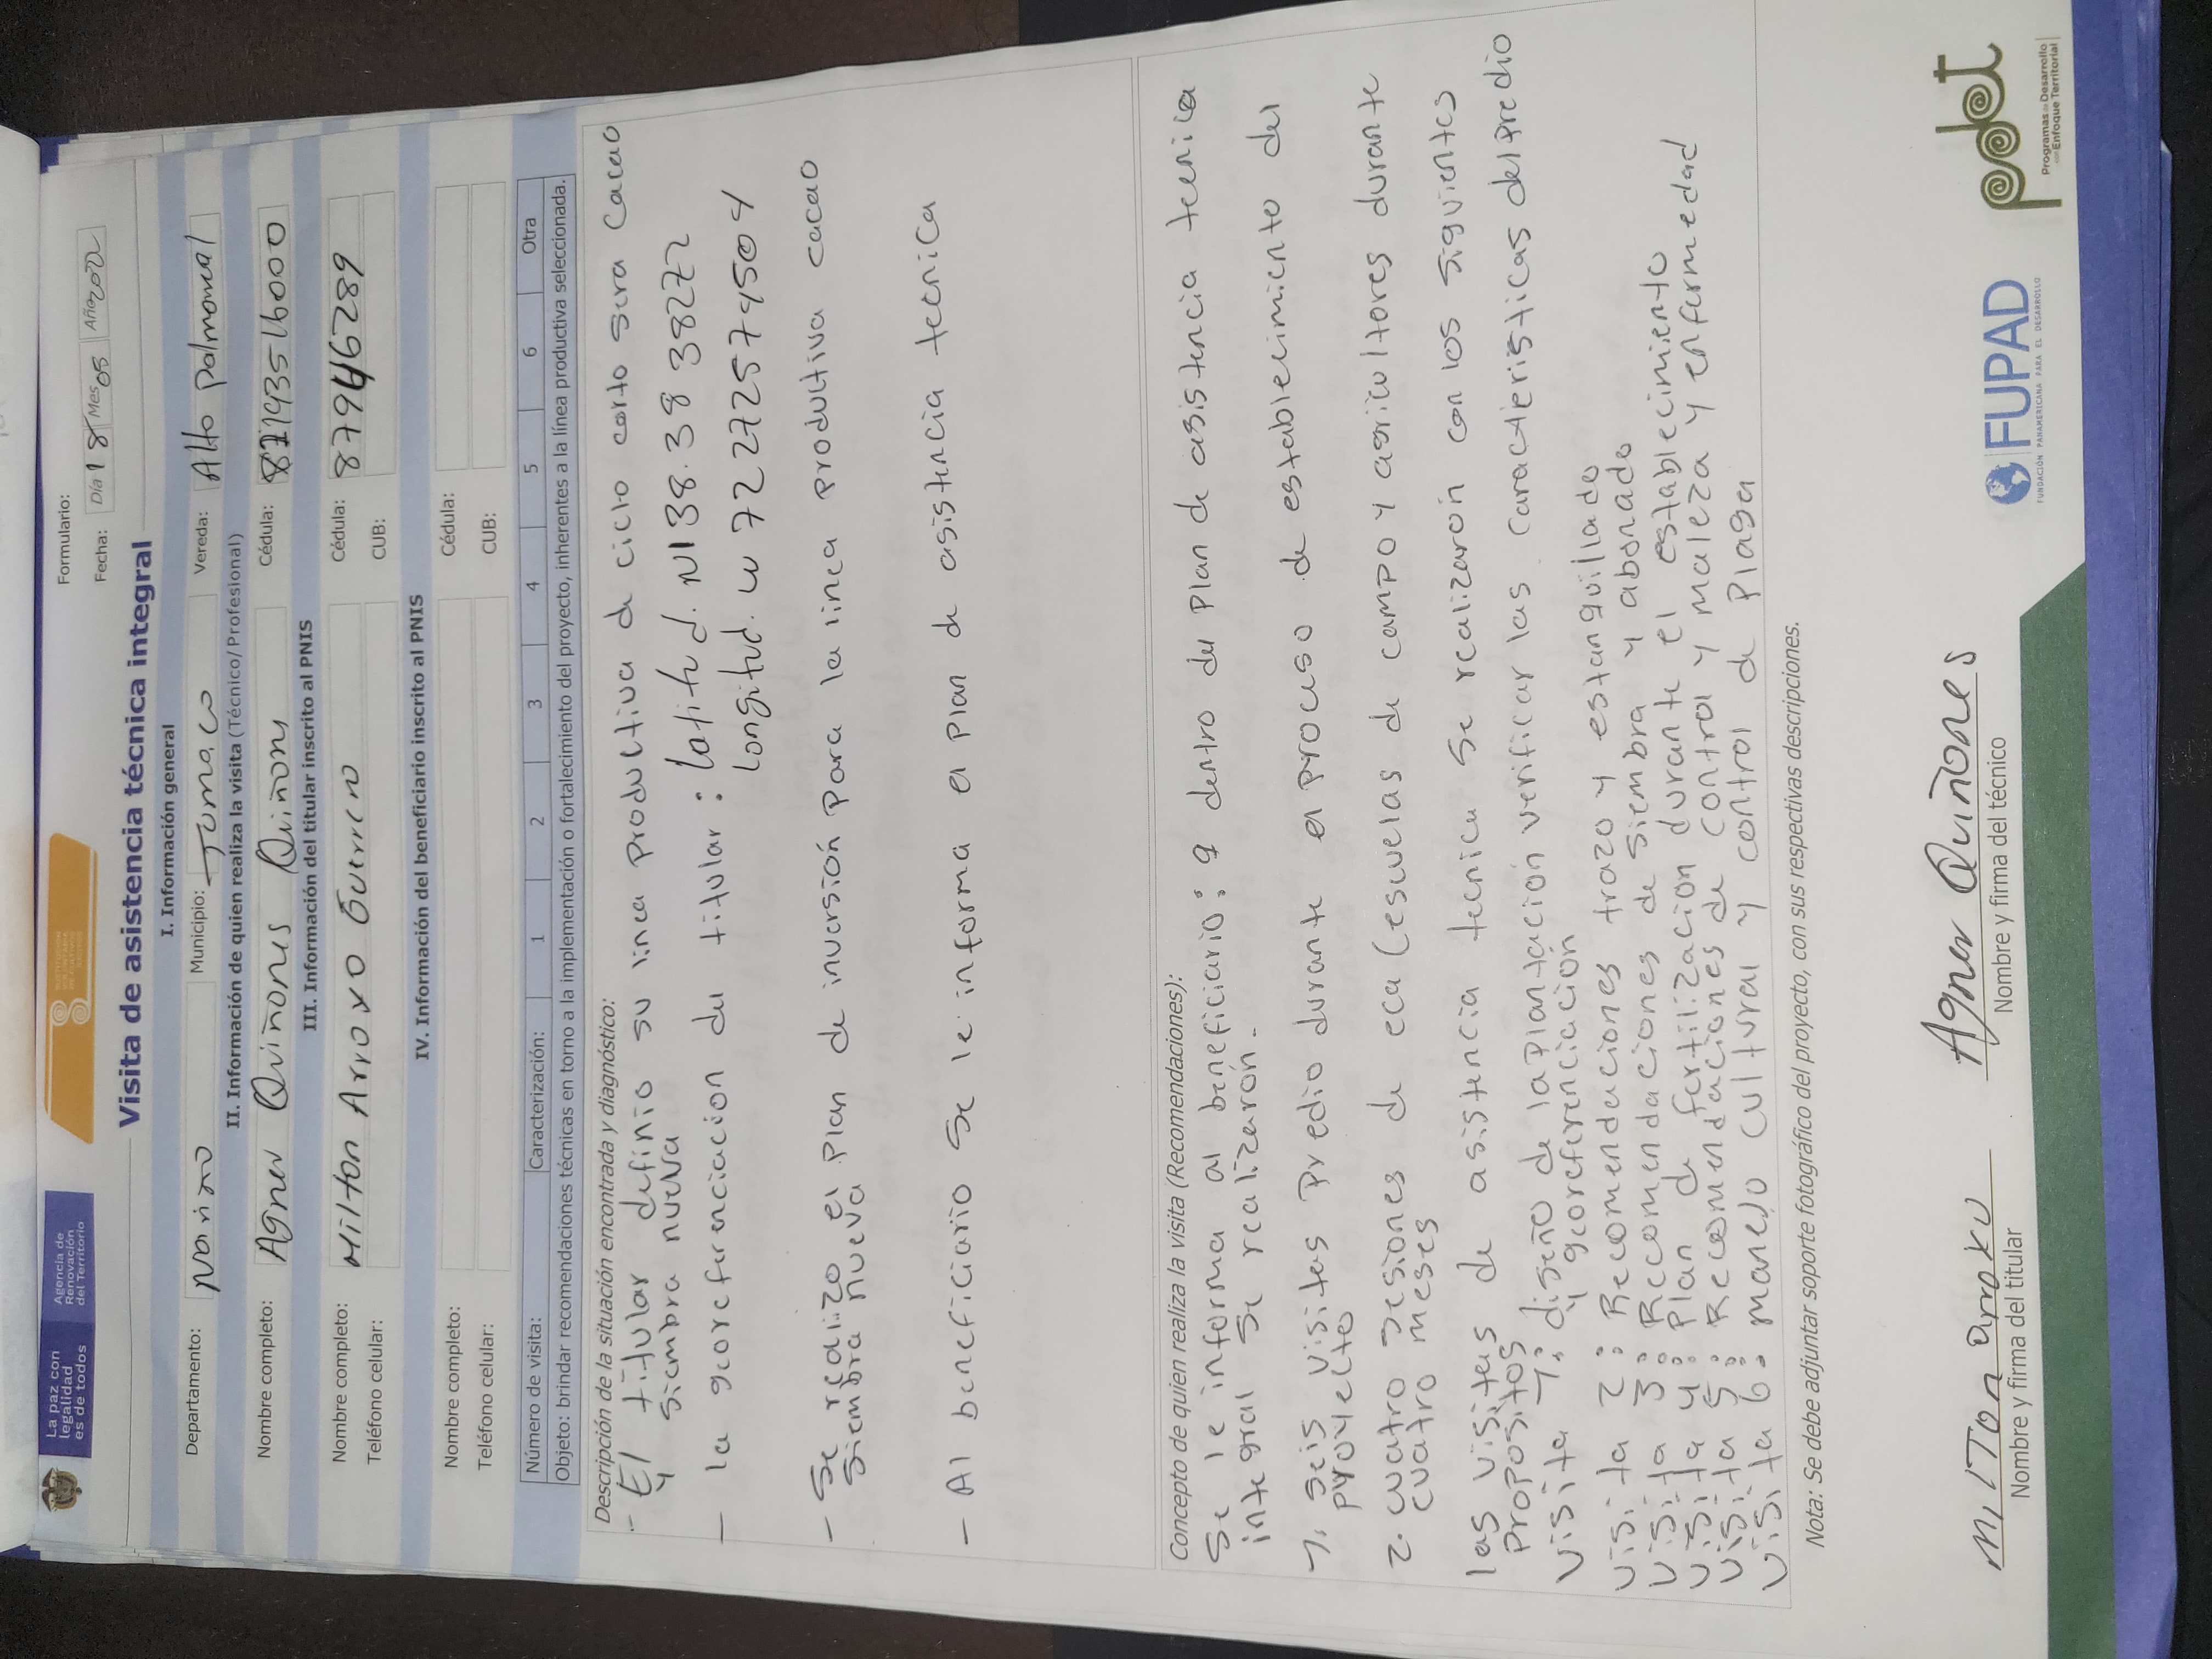 La paz con
legalidad
es de todos
Agencia de
Renovación
del Territorio
Formulario:
Fecha: Día 18 Mes 05 Año 2022
Visita de asistencia técnica integral
I. Información general
Departamento: Nariño Municipio: Tumaco Vereda: Alto Palmomal
II. Información de quien realiza la visita (Técnico/Profesional)
Nombre completo: Agner Quiñones Quiñones Cédula:
III. Información del titular inscrito al PNIS
Nombre completo: Milton Arroyo Guerrero Cédula: 87946289
Teléfono celular: CUB:
IV. Información del beneficiario inscrito al PNIS
Nombre completo: Cédula:
Teléfono celular: CUB:
Número de visita: Caracterización: 1 2 3 4 5 6 Otra
Objeto: brindar recomendaciones técnicas en torno a la implementación o fortalecimiento del proyecto, inherentes a la línea productiva seleccionada.
Descripción de la situación encontrada y diagnóstico:
- El titular definio su linea productiva de ciclo corto sera cacao
y siembra nueva
- la georeferenciacion del titular: latitud. N1 38. 38 38272
longitud. W 72 2725 794504
- Se realizo el plan de inversión para la linea productiva cacao
siembra nueva
- Al beneficiario se le informa el plan de asistencia tecnica
Concepto de quien realiza la visita (Recomendaciones):
Se le informa al beneficiario: q dentro del plan de asistencia tecnica
integral se realizarón.
1. seis visitas predio durante el proceso de establecimiento del
proyecto
2. cuatro sesiones de eca (escuelas de campo y agricultores durante
cuatro meses
las visitas de asistencia tecnica se realizarón con los siguientes
propositos
Visita 1: diseño de la plantación verificar las caracteristicas del predio
y georeferenciación
Visita 2: Recomendaciones trazo y estanquillado
Visita 3: Recomendaciones de siembra y abonado
Visita 4: Plan de fertilización durante el establecimiento
Visita 5: Recomendaciones de control y maleza y enfermedad
Visita 6: manejo cultural y control de plaga
Nota: Se debe adjuntar soporte fotográfico del proyecto, con sus respectivas descripciones.
Milton arroku
Nombre y firma del titular
Agner Quiñones
Nombre y firma del técnico
FUPAD
FUNDACIÓN PANAMERICANA PARA EL DESARROLLO
pdet
Programas de Desarrollo
con Enfoque Territorial